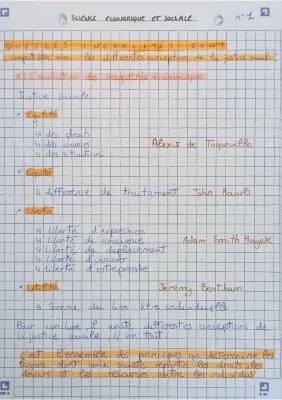 SCIENCE ECONOMIQUE ET SOCIALE n°1
QUELLES INEGALITES SONT
compatibles avec les différentes conception de la justice sociale
L'évolution des inégalités économiques
Justice sociale
Egalité
↳ des droits
↳ des chances
↳ des situations
Alexis de Toqueville
Equité
↳ différence de traitement John Rawls
Liberté
↳ liberté d'expression
↳ liberté de conscience
↳ liberté de déplacement
↳ liberté d'innover
↳ liberté d'entreprendre
Adam Smith Hayek
Utilité Jeremy Bentham
↳ Somme du bien être individuelle
Pour conclure, il existe différentes conceptions de
la justice sociale, on tout
c'est l'ensemble des principes qui détermine les
façons dont une société répartie les droits, les
devoirs et les ressources entre les individus